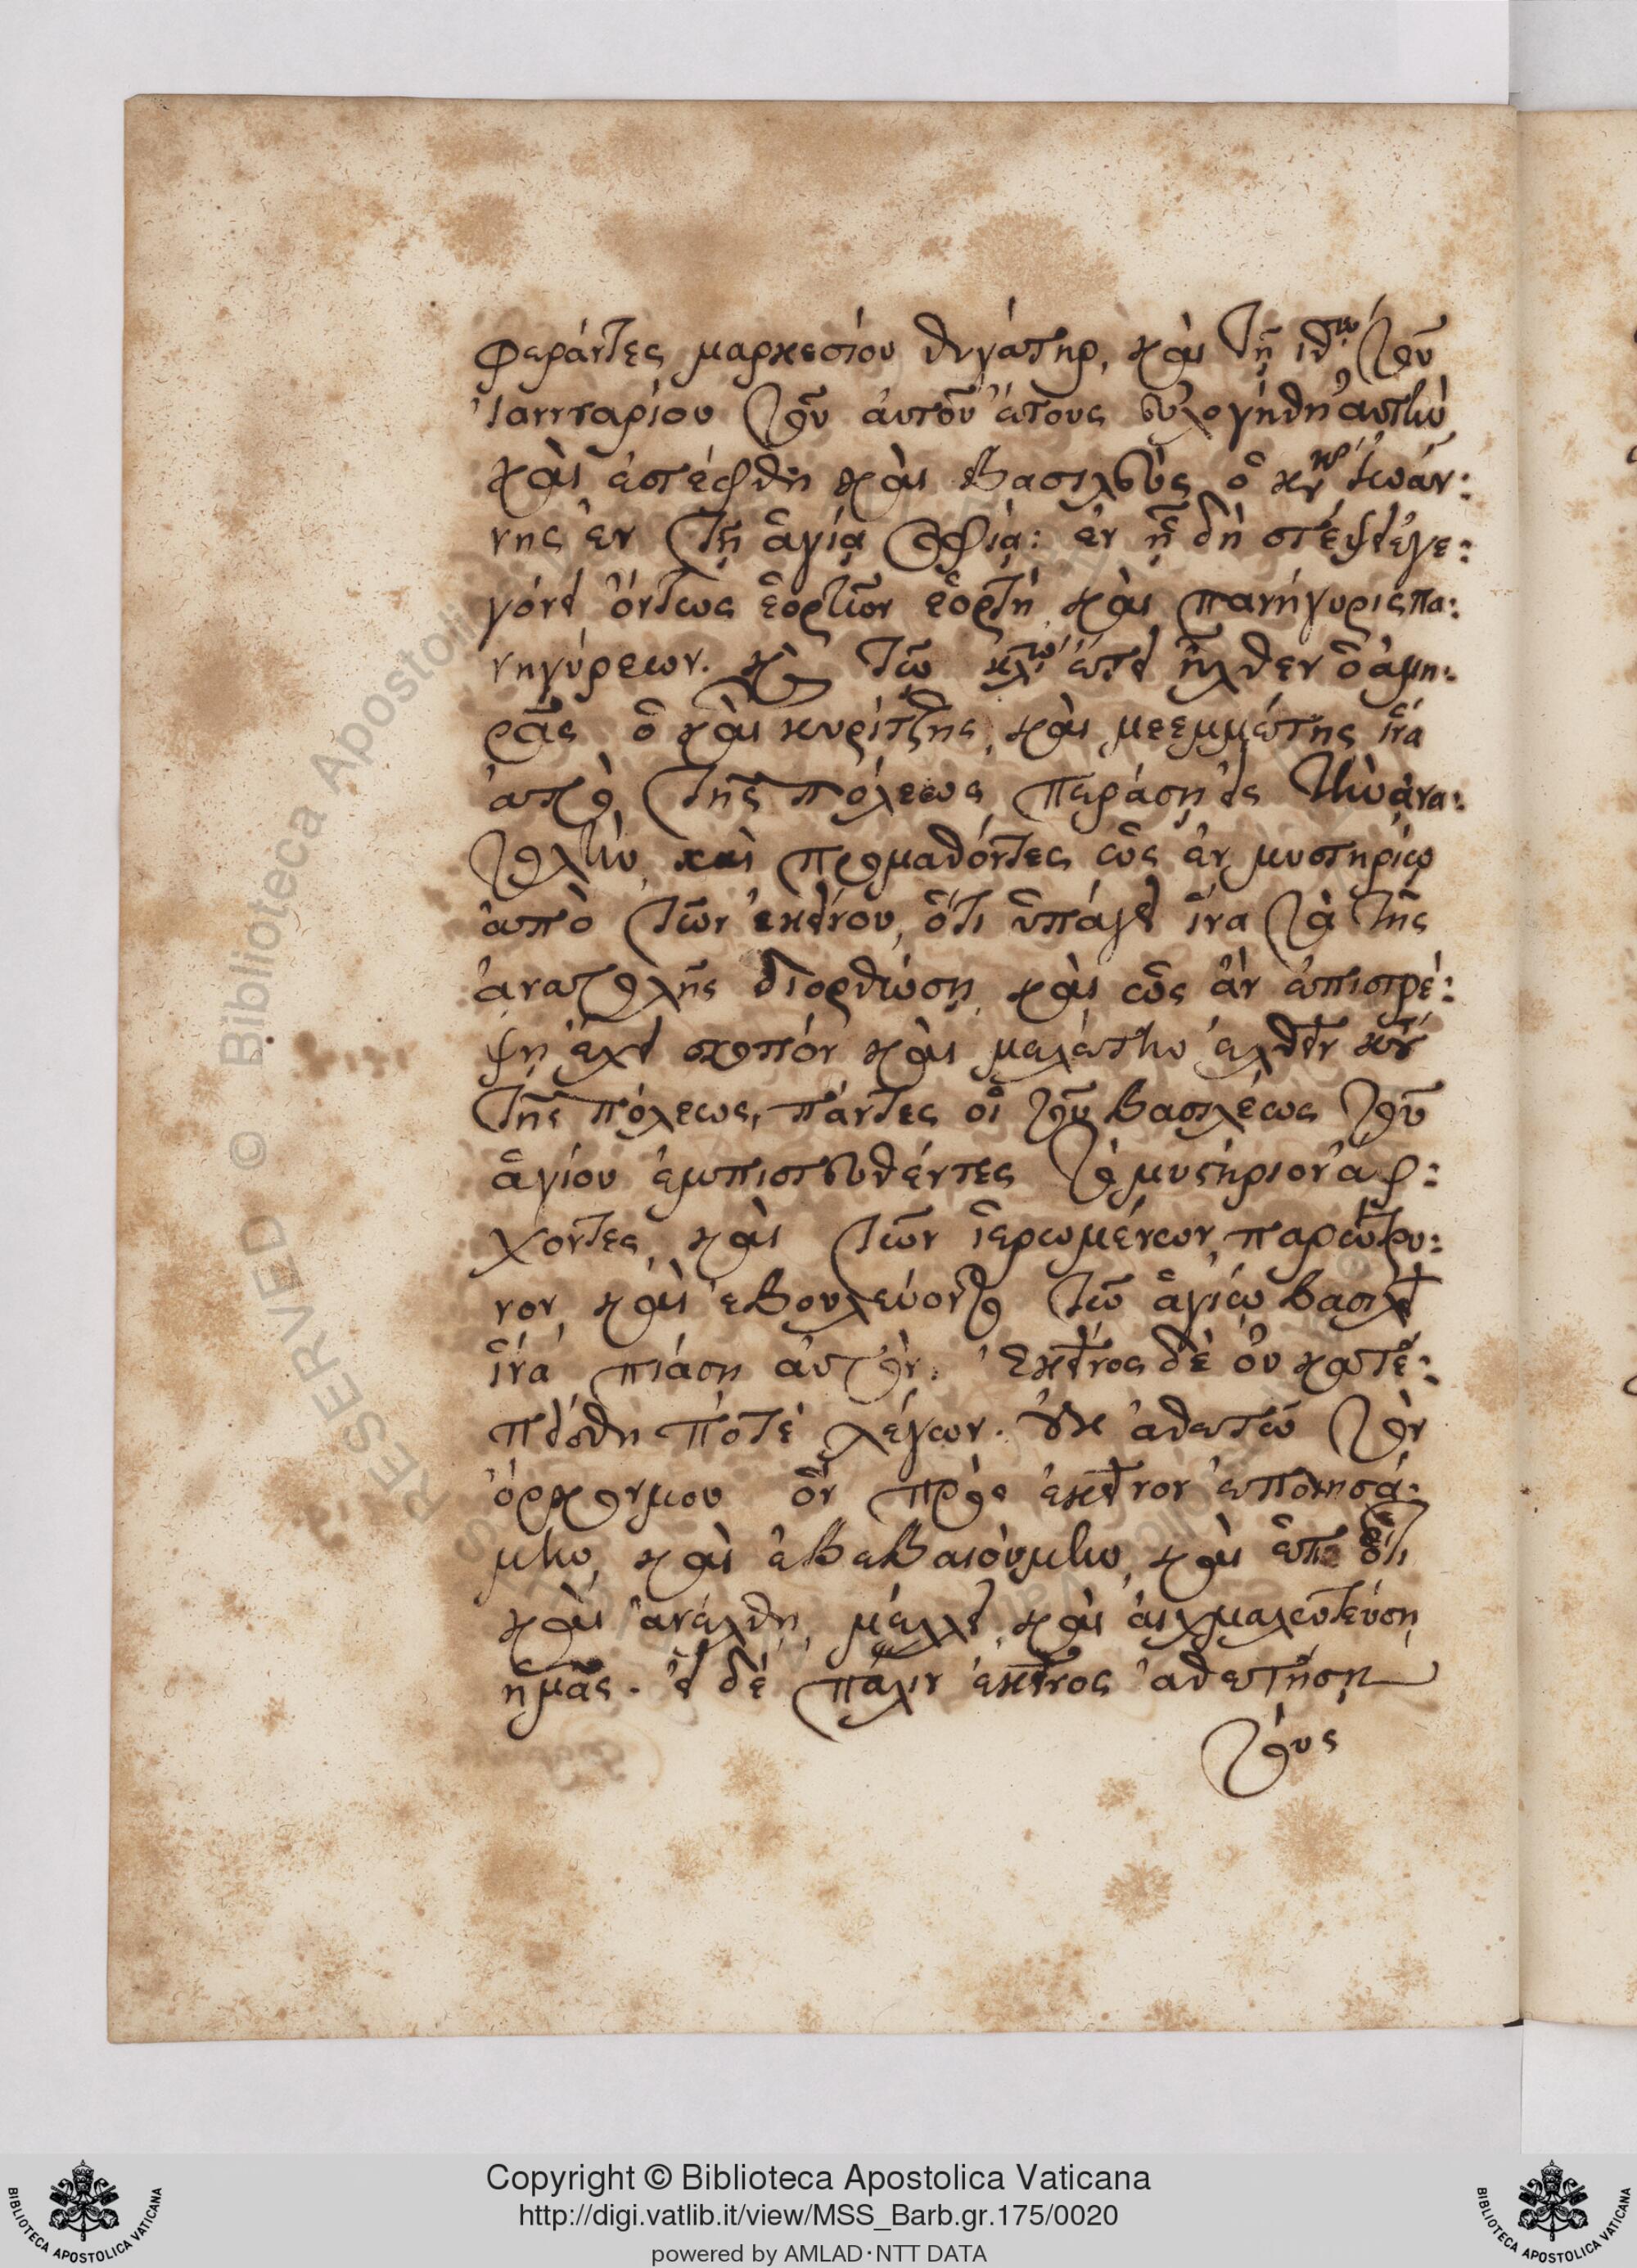 Φεράντες μαρκεσίου θυγάτηρ, καὶ τῇ ιθ͵ῳ τοῦ
Ἰαννταρίου τοῦ αὐτοῦ ἔτους εὐλογήθη αὐτὴν
καὶ ἐστέφθη καὶ βασιλεὺς ὁ κὺρ Ἰωάν:
νης ἐν τῇ ἁγίᾳ σοφίᾳ: ἐν ᾗ δὴ στέψει ἐγε:
γόνει ὄντως ἑορτῶν ἑορτὴ καὶ πανήγυρις πα:
νηγύρεων. καὶ τῷ κλῳ ἔτει ἦλθεν ὁ ἀμη:
ρᾶς ὁ καὶ κυρίτζης, καὶ μεεμμέτης ἵνα
ἀπὸ τῆς πόλεως περάσῃ εἰς τὴν ἀνα:
τολὴν, καὶ προμαθόντες ὡς ἐν μυστηρίῳ
ἀπὸ τῶν ἐκείνου, ὅτι ὑπάγει ἵνα τὰ τῆς
ἀνατολῆς διορθώσῃ καὶ ὡς ἂν ἐπιστρέ:
ψῃ ἔχει σκοπὸν καὶ μελέτην ἐλθεῖν κατὰ
τῆς πόλεως, πάντες οἱ τοῦ βασιλέως τοῦ
ἁγίου ἐμπιστευθέντες τὸ μυστήριον ἄρ:
χοντες, καὶ τῶν ἱερωμένων, παρώτρυ:
νον, καὶ ἐβουλεύοντο τῷ ἁγίῳ βασιλεῖ
ἵνα πιάσῃ αὐτόν. Ἐκεῖνος δὲ οὐ κατε:
πείσθη ποτὲ λέγων. οὐκ ἀθετῶ τὸν
ὅρκον μου ὃν πρὸς ἐκεῖνον ἐποιησά:
μην, καὶ ἐβεβαιούμην, καὶ ὅτι
καὶ ἂν ἔλθῃ, μέλλει, καὶ αἰχμαλωτεύσῃ
ἡμᾶς. εἰ δὲ πάλιν ἐκεῖνος ἀθετήσῃ
τοὺς
Copyright © Biblioteca Apostolica Vaticana
http://digi.vatlib.it/view/MSS_Barb.gr.175/0020
powered by AMLAD·NTT DATA